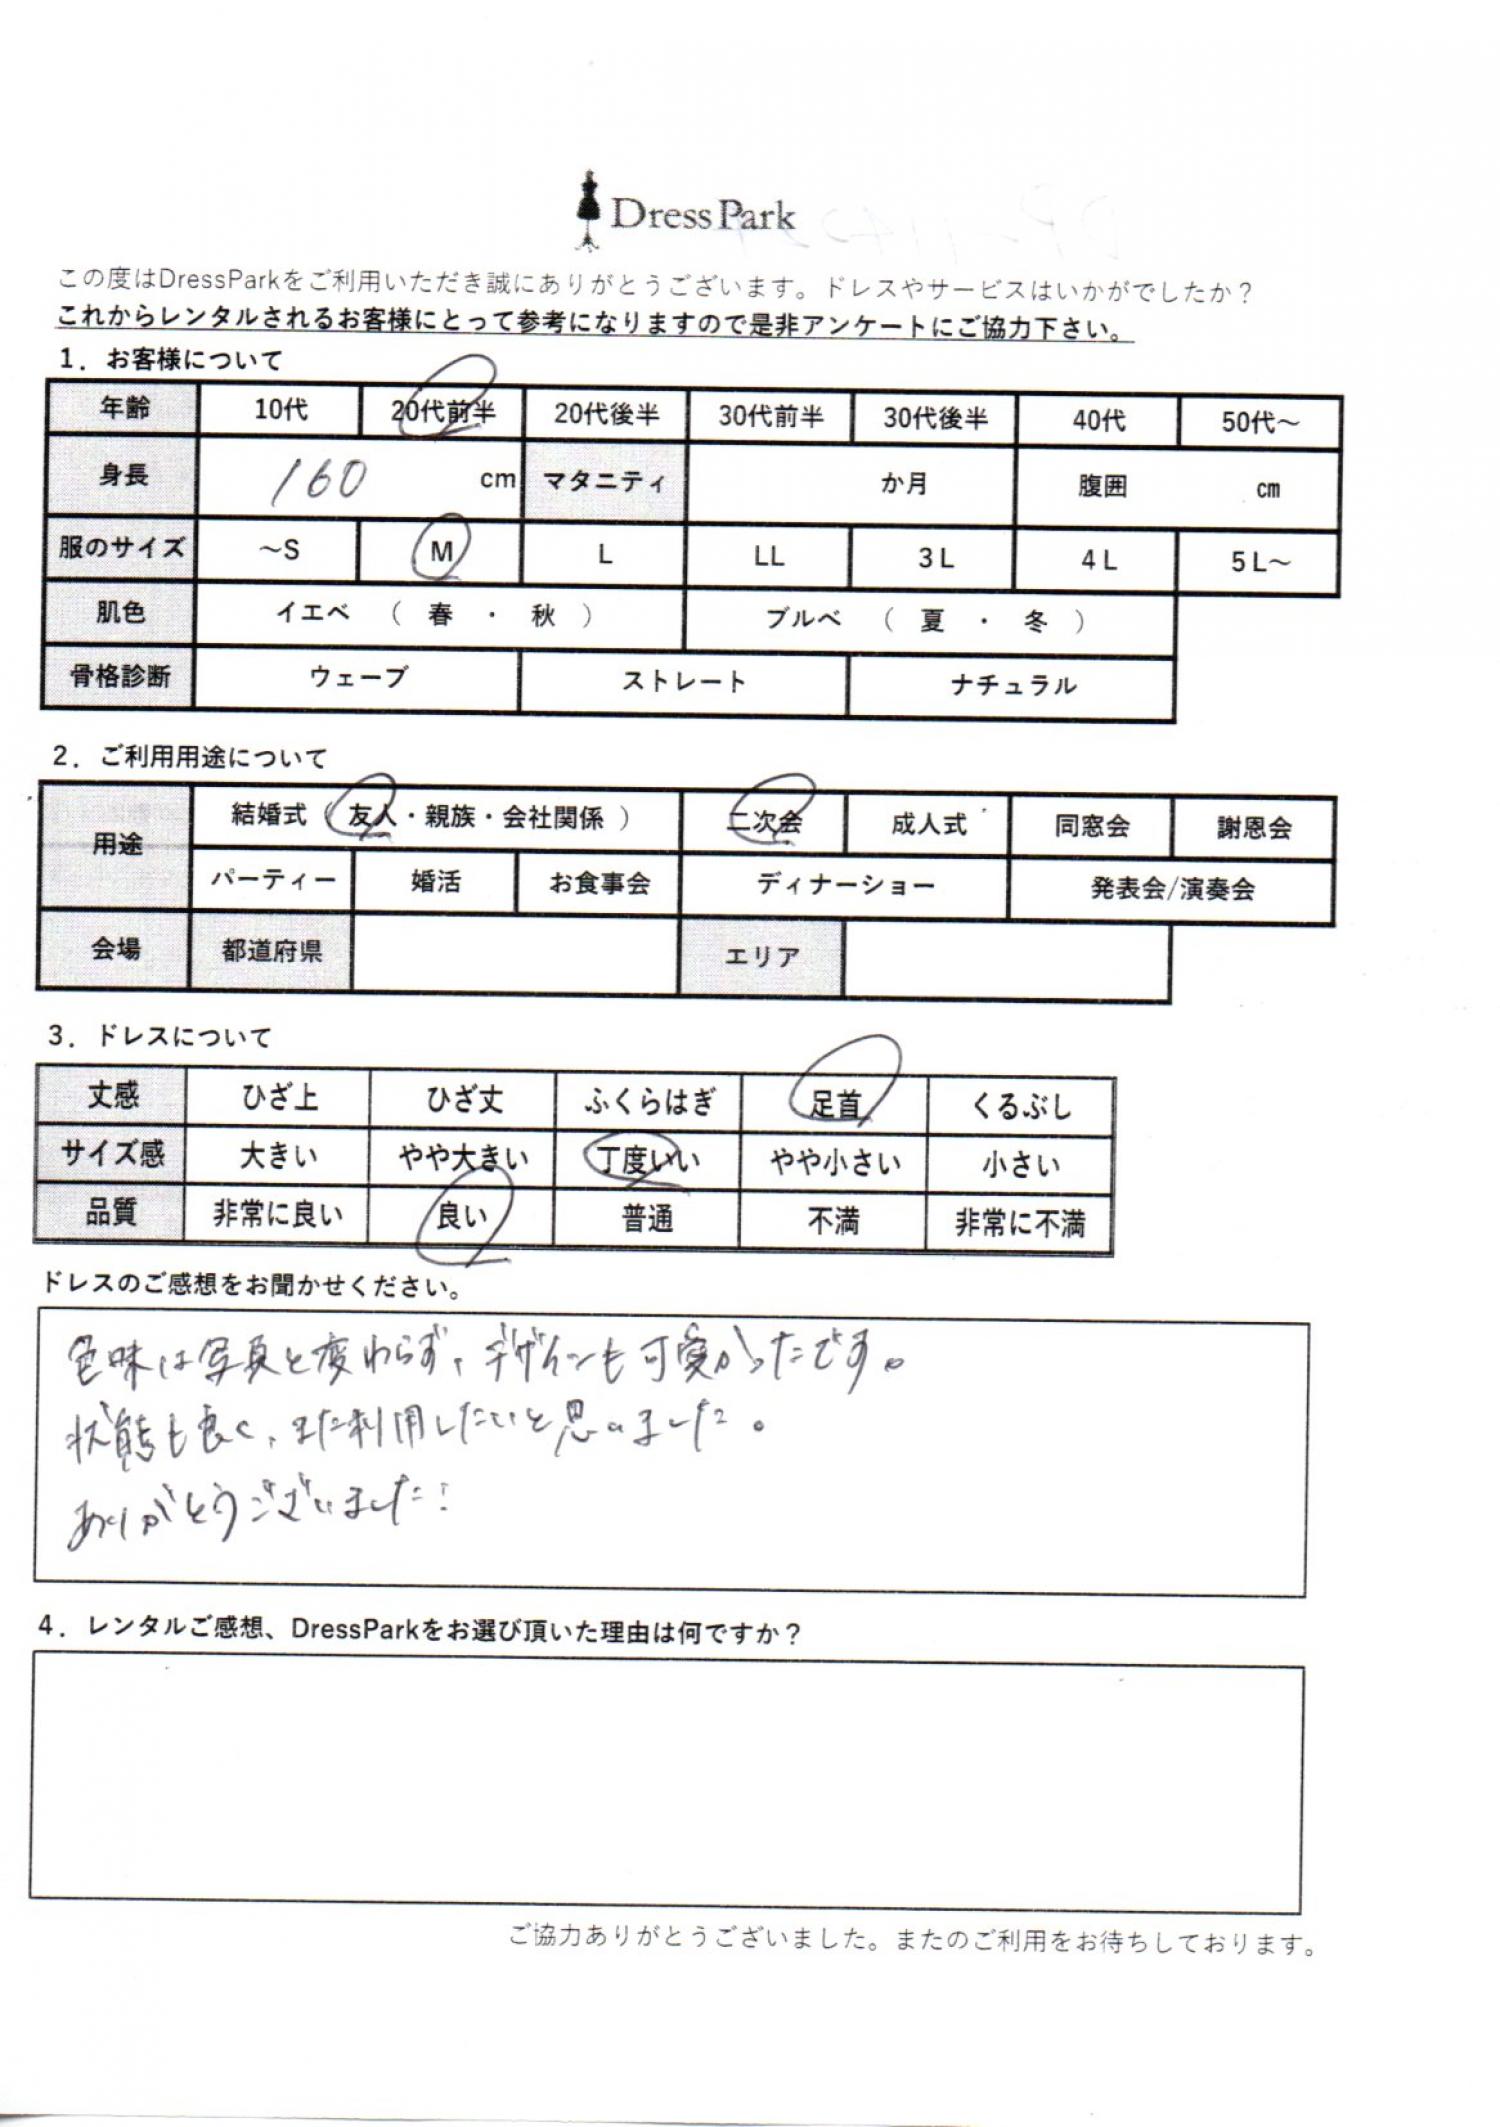 DressPark
この度はDressParkをご利用いただき誠にありがとうございます。ドレスやサービスはいかがでしたか？
これからレンタルされるお客様にとって参考になりますので是非アンケートにご協力下さい。
1．お客様について
年齢 10代 20代前半 20代後半 30代前半 30代後半 40代 50代～
身長 160 cm マタニティ か月 腹囲 ㎝
服のサイズ ～S M L LL 3L 4L 5L～
肌色 イエベ （ 春 ・ 秋 ） ブルベ （ 夏 ・ 冬 ）
骨格診断 ウェーブ ストレート ナチュラル
2．ご利用用途について
用途 結婚式（ 友人・親族・会社関係 ） 二次会 成人式 同窓会 謝恩会
パーティー 婚活 お食事会 ディナーショー 発表会/演奏会
会場 都道府県 エリア
3．ドレスについて
丈感 ひざ上 ひざ丈 ふくらはぎ 足首 くるぶし
サイズ感 大きい やや大きい 丁度いい やや小さい 小さい
品質 非常に良い 良い 普通 不満 非常に不満
ドレスのご感想をお聞かせください。
色味は写真と変わらず、デザインも可愛かったです。
状態も良く、また利用したいと思いました。
ありがとうございました！
4．レンタルご感想、DressParkをお選び頂いた理由は何ですか？
ご協力ありがとうございました。またのご利用をお待ちしております。